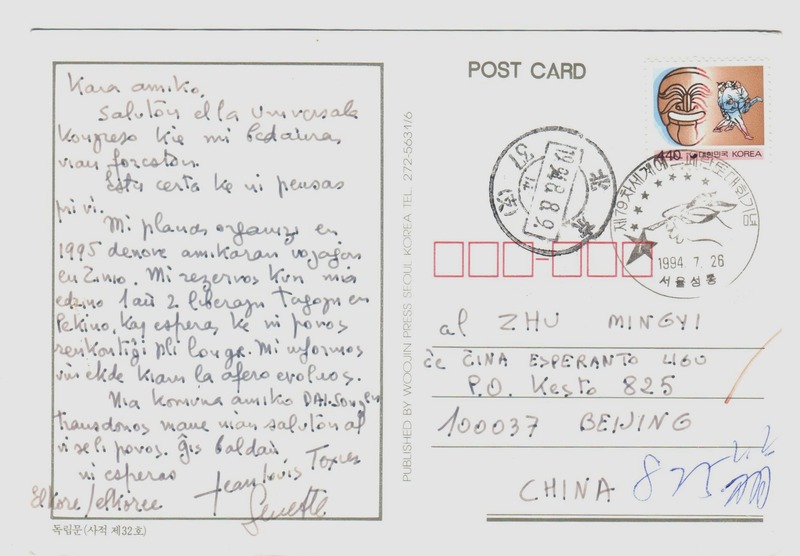 Kara amiko,
Salutôn el la Universala
Kongreso kie mi bedaŭras
vian foreston.
Estu certa ke ni pensas
pri vi.
Mi planas organizi en
1995 denove amikaran vojaĝon
en Ĉinio. Mi rezervos kun mia
edzino 1 aŭ 2 liberajn tagojn en
Pekino, kaj esperas ke ni povos
renkontiĝi pli longe. Mi informos
vin ekde kiam la afero evoluos.
Nia komuna amiko
transdonos mane nian salutôn al
vi se li povos. Ĝis baldaŭ
ni esperas
Elkore / elkoree
Jean Louis Texier
독립문 (사적 제32호)
PUBLISHED BY WOOJIN PRESS SEOUL KOREA TEL. 272-5631/6
POST CARD
440 대한민국 KOREA
제79차세계에스페란토대회기념
1994. 7. 26
서울성동
北京
1994.8.8.9
al ZHU MINGYI
ĉe ĈINA ESPERANTO LIGO
P.O. Kesto 825
100037 BEIJING
CHINA 825